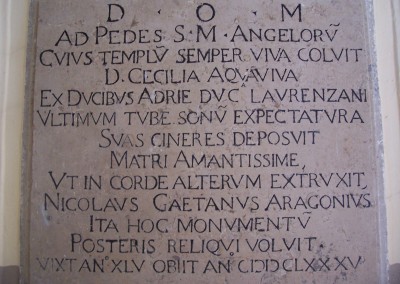 D · O · M
AD PEDES S · M · ANGELORŪ
CVIVS TEMPLŪ SEMPER VIVA COLVIT
D. CECILIA AQVAVIVA
EX DUCIBUS ADRIE DVC LAVRENZANI
VLTIMVM TVBE SONŪ EXPECTATVRA
SVAS CINERES DEPOSVIT
MATRI AMANTISSIME,
VT IN CORDE ALTERVM EXTRVXIT
NICOLAVS GAETANVS ARAGONIVS
ITA HOC MONVMENTŪ
POSTERIS RELIQVI VOLVIT ·
VIXT AN° XLV OBIIT AN°